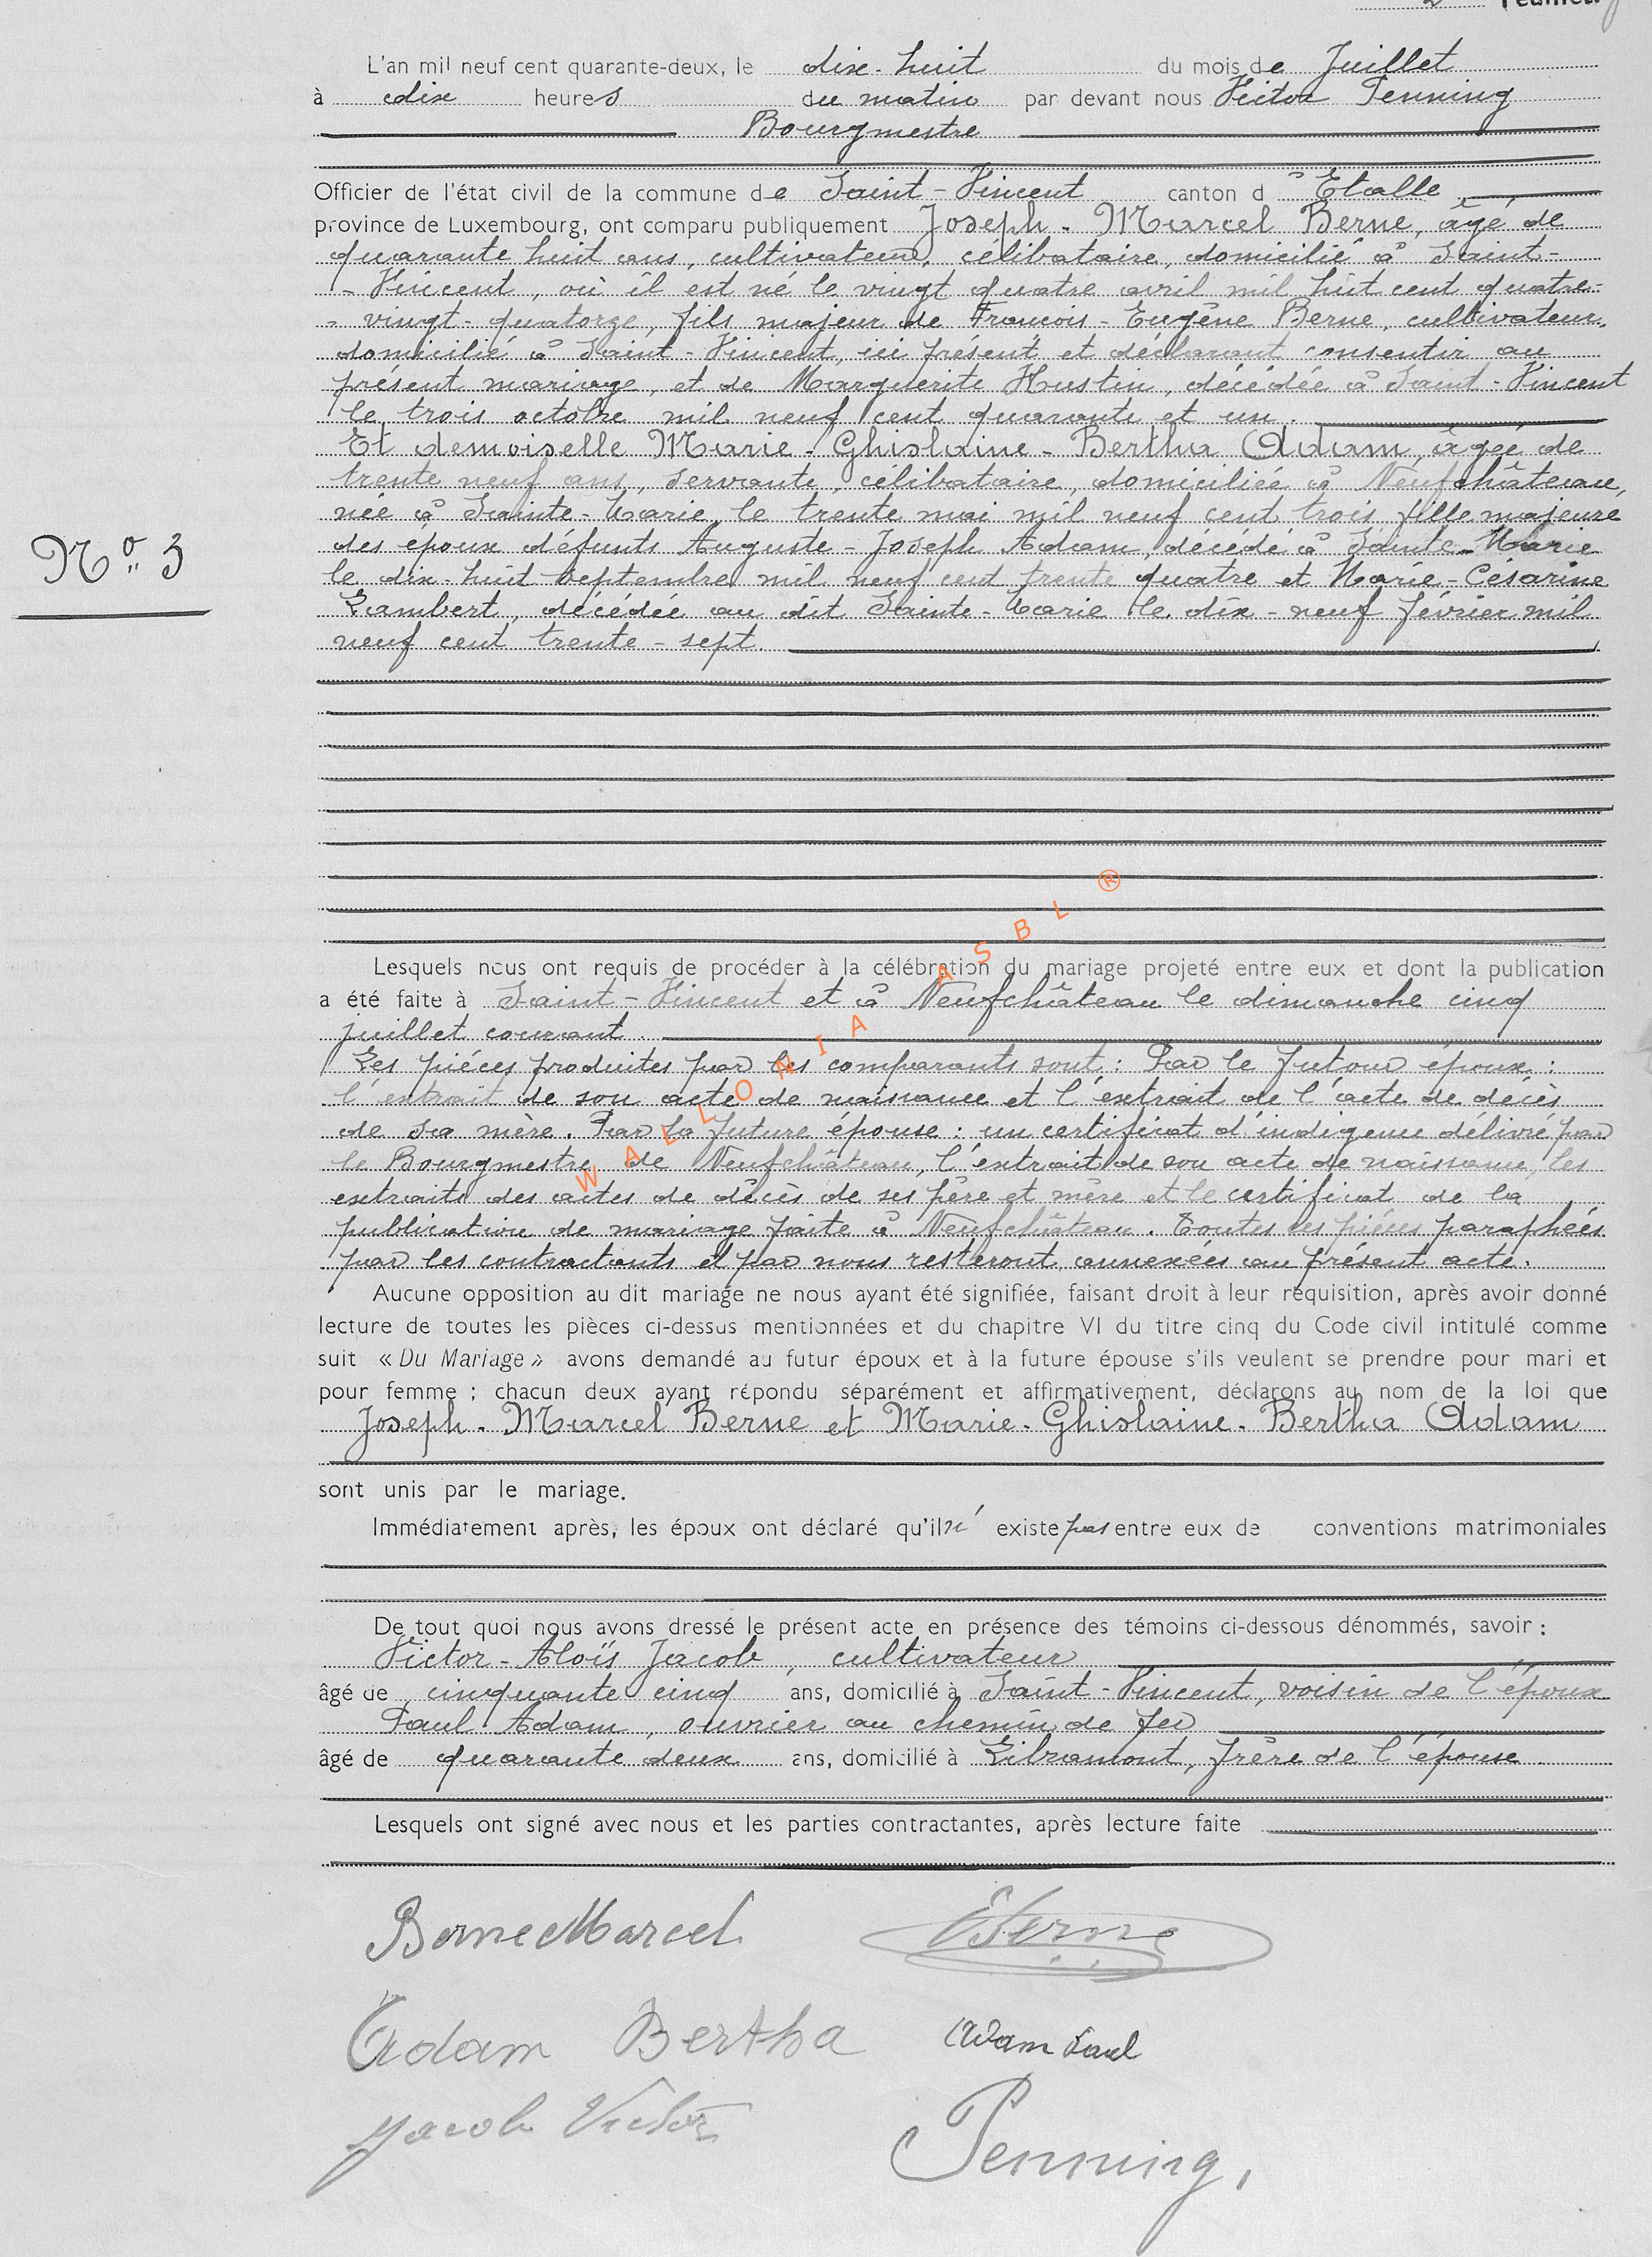 Feuillet.
L'an mil neuf cent quarante-deux, le dix-huit du mois de Juillet
à dix heures du matin par devant nous Victor Penning
Bourgmestre
Officier de l'état civil de la commune de Saint-Vincent canton d'Etalle
province de Luxembourg, ont comparu publiquement Joseph-Marcel Berne, âgé de
quarante huit ans, cultivateur, célibataire, domicilié à Saint-
-Vincent, où il est né le vingt quatre avril mil huit cent quatre-
-vingt-quatorze, fils majeur de François-Eugène Berne, cultivateur,
domicilié à Saint-Vincent, ici présent et déclarant consentir au
présent mariage, et de Marguerite Hustin, décédée à Saint-Vincent
le trois octobre mil neuf cent quarante et un.
Et demoiselle Marie-Ghislaine-Bertha Adam, âgée de
trente neuf ans, servante, célibataire, domiciliée à Neufchâteau,
née à Sainte-Marie, le trente mai mil neuf cent trois, fille majeure
des époux défunts Auguste-Joseph Adam, décédé à Sainte-Marie
Nº 3
le dix-huit septembre mil neuf cent trente quatre et Marie-Césarine
Lambert, décédée au dit Sainte-Marie le dix-neuf février mil
neuf cent trente-sept.
Lesquels nous ont requis de procéder à la célébration du mariage projeté entre eux et dont la publication
a été faite à Saint-Vincent et à Neufchâteau le dimanche cinq
juillet courant.
Les pièces produites par les comparants sont: Par le futur époux:
l'extrait de son acte de naissance et l'extrait de l'acte de décès
de sa mère. Par la future épouse: un certificat d'indigence délivré par
le Bourgmestre de Neufchâteau, l'extrait de son acte de naissance, les
extraits des actes de décès de ses père et mère et le certificat de la
publication de mariage faite à Neufchâteau. Toutes les pièces paraphées
par les contractants et par nous resteront annexées au présent acte.
WALLONIA ASBL ®
Aucune opposition au dit mariage ne nous ayant été signifiée, faisant droit à leur réquisition, après avoir donné
lecture de toutes les pièces ci-dessus mentionnées et du chapitre VI du titre cinq du Code civil intitulé comme
suit « Du Mariage » avons demandé au futur époux et à la future épouse s'ils veulent se prendre pour mari et
pour femme ; chacun deux ayant répondu séparément et affirmativement, déclarons au nom de la loi que
Joseph-Marcel Berne et Marie-Ghislaine-Bertha Adam
sont unis par le mariage.
Immédiatement après, les époux ont déclaré qu'il n' existe pas entre eux de conventions matrimoniales
De tout quoi nous avons dressé le présent acte en présence des témoins ci-dessous dénommés, savoir :
Victor-Aloïs Jacob, cultivateur
âgé de cinquante cinq ans, domicilié à Saint-Vincent, voisin de l'époux
Paul Adam, ouvrier au chemin de fer
âgé de quarante deux ans, domicilié à Libramont, frère de l'épouse
Lesquels ont signé avec nous et les parties contractantes, après lecture faite
Berne Marcel EBerne
Adam Bertha Adam Paul
Jacob Victor Penning,